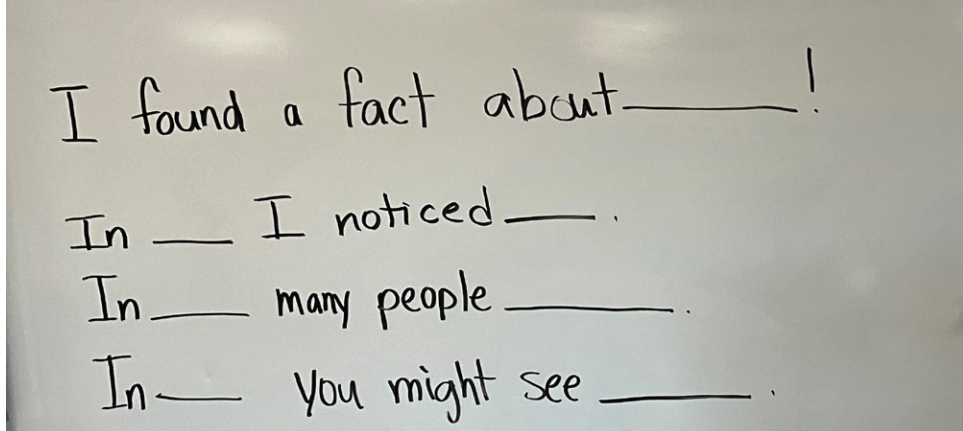 I found a fact about ______!
In ____ I noticed ____.
In ____ many people ______.
In ____ you might see ______.